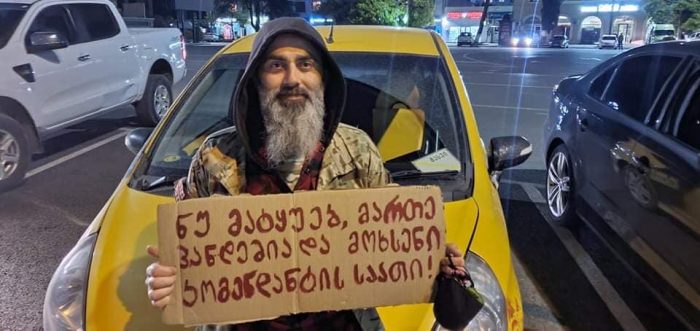 ნუ მატყუებ, მართე
პანდემია და მოხსენი
კომენდანტის საათი!